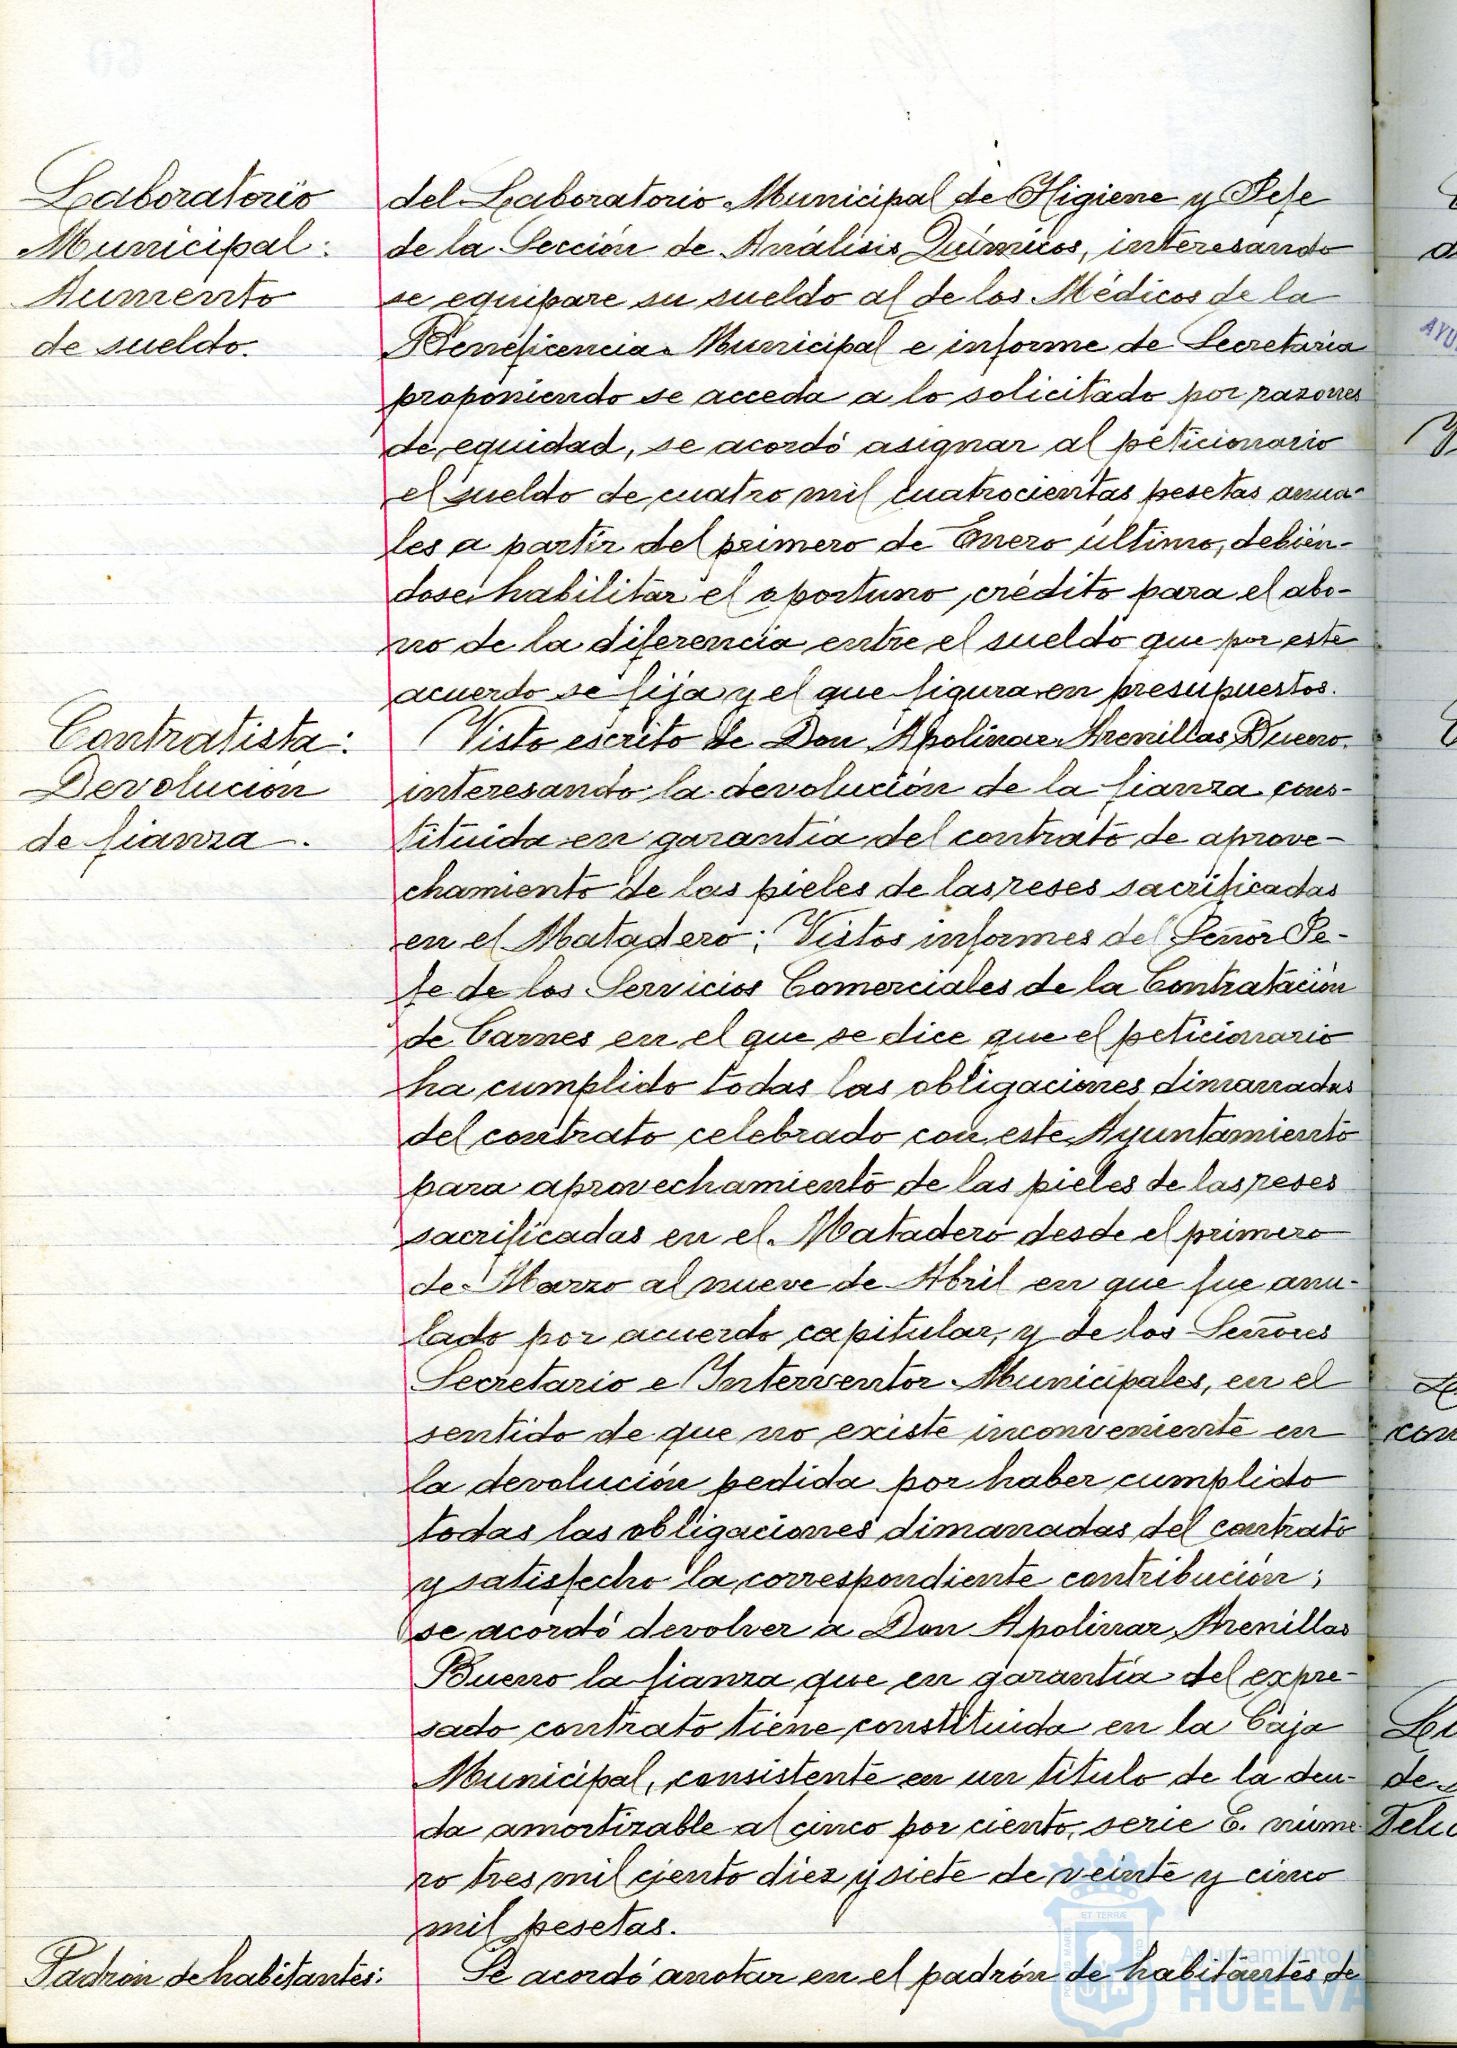 Laboratorio
Municipal:
Aumento
de sueldo.
del Laboratorio Municipal de Higiene y Jefe
de la Sección de Análisis Químicos, interesando
se equipare su sueldo al de los Médicos de la
Beneficencia Municipal e informe de Secretaría
proponiendo se acceda a lo solicitado por razones
de equidad, se acordó asignar al peticionario
el sueldo de cuatro mil cuatrocientas pesetas anua-
les a partir del primero de Enero último, debién-
dose habilitar el oportuno crédito para el abo-
no de la diferencia entre el sueldo que por este
acuerdo se fija y el que figura en presupuestos.
Contratista:
Devolución
de fianza.
Visto escrito de Don Apolinar Arenillas Bueno
interesando la devolución de la fianza cons-
tituida en garantía del contrato de aprove-
chamiento de las pieles de las reses sacrificadas
en el Matadero; Vistos informes del Señor Je-
fe de los Servicios Comerciales de la Contratación
de Carnes en el que se dice que el peticionario
ha cumplido todas las obligaciones dimanadas
del contrato celebrado con este Ayuntamiento
para aprovechamiento de las pieles de las reses
sacrificadas en el Matadero desde el primero
de Marzo al nueve de Abril en que fue anu-
lado por acuerdo capitular, y de los Señores
Secretario e Interventor Municipales, en el
sentido de que no existe inconveniente en
la devolución pedida por haber cumplido
todas las obligaciones dimanadas del contrato
y satisfecho la correspondiente contribución;
se acordó devolver a Don Apolinar Arenillas
Bueno la fianza que en garantía del expre-
sado contrato tiene constituida en la Caja
Municipal, consistente en un título de la deu-
da amortizable al cinco por ciento, serie E. núme
ro tres mil ciento diez y siete de veinte y cinco
mil pesetas.
Padrón de habitantes:
Se acordó anotar en el padrón de habitantes de
Ayuntamiento de
HUELVA